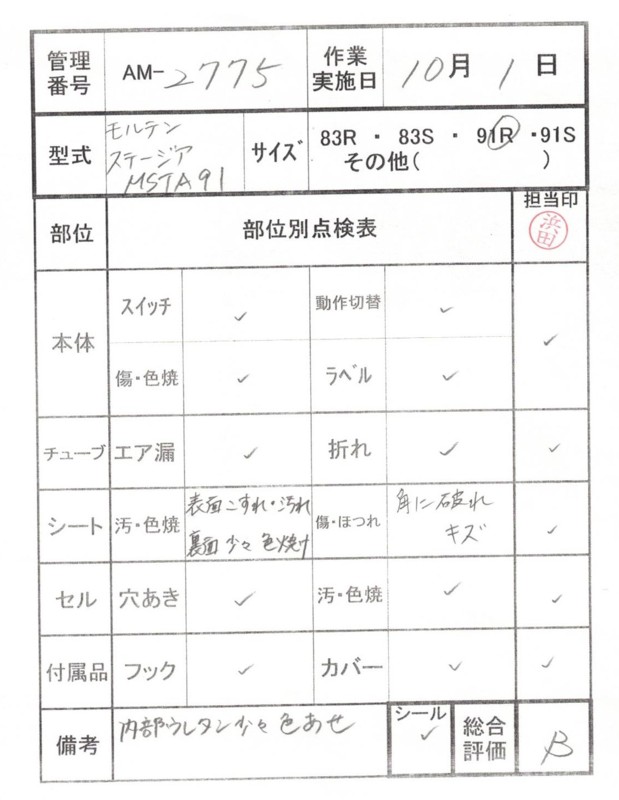 管理番号 AM-2775 作業実施日 10月1日
型式 モルテン ステージア MSTA91 サイズ 83R ・ 83S ・ 91R ・91S その他( )
部位 部位別点検表 担当印 浜田
本体 スイッチ ✓ 動作切替 ✓ ✓
傷・色焼 ✓ ラベル ✓
チューブ エア漏 ✓ 折れ ✓ ✓
シート 汚・色焼 表面こすれ・汚れ 裏面少々色焼け 傷・ほつれ 角に破れ キズ ✓
セル 穴あき ✓ 汚・色焼 ✓ ✓
付属品 フック ✓ カバー ✓ ✓
備考 内部ウレタン少々色あせ シール ✓ 総合評価 B